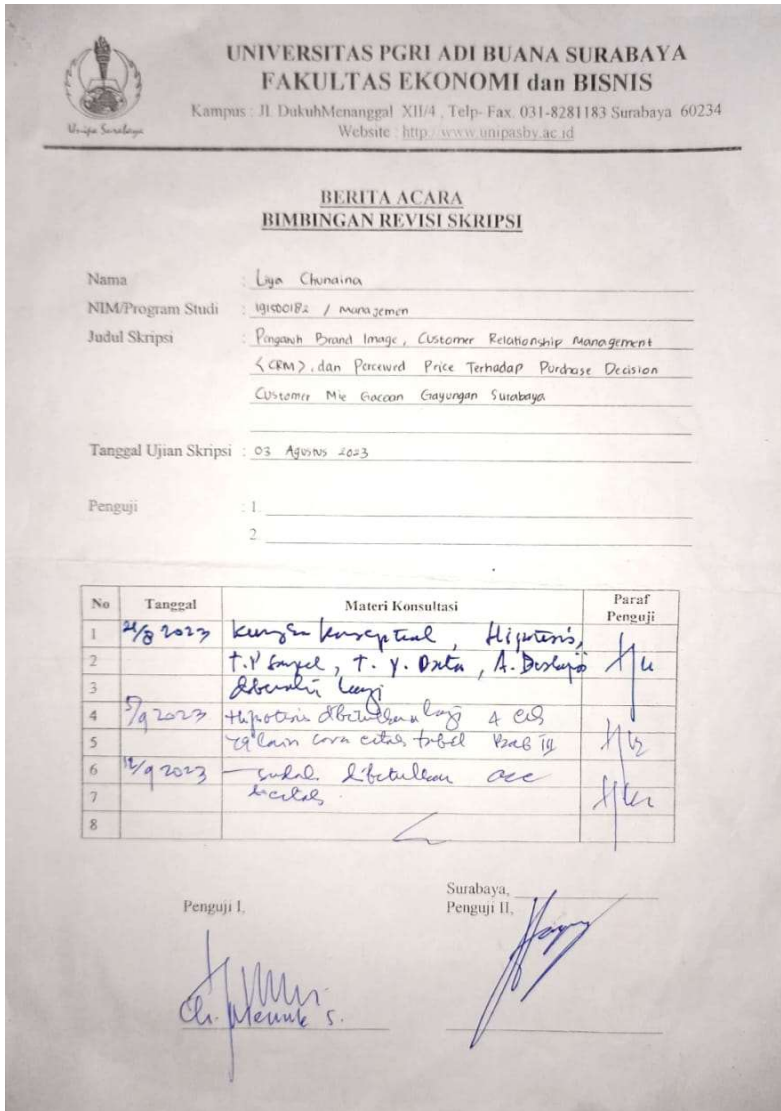 UNIVERSITAS PGRI ADI BUANA SURABAYA
FAKULTAS EKONOMI dan BISNIS
Kampus : Jl. DukuhMenanggal XII/4 , Telp- Fax. 031-8281183 Surabaya 60234
Website : http://www.unipasby.ac.id
Unipa Surabaya
BERITA ACARA
BIMBINGAN REVISI SKRIPSI
Nama : Liya Chunaina
NIM/Program Studi : 191500182 / Manajemen
Judul Skripsi : Pengaruh Brand Image, Customer Relationship Management
<CRM>, dan Perceived Price Terhadap Purchase Decision
Customer Mie Gacoan Gayungan Surabaya
Tanggal Ujian Skripsi : 03 Agustus 2023
Penguji : 1.
2.
No Tanggal Materi Konsultasi Paraf Penguji
1 2023 konseptual, Hipotesis,
2 T. P Sampel, T. P. Data, A.
3 lagi
4 5/9 2023 Hipotesis dibetulkan lagi
5 cara tabel Bab III
6 12/9 2023 - sudah dibetulkan acc
7
8
Surabaya,
Penguji I, Penguji II,
Ch. Menuk S.